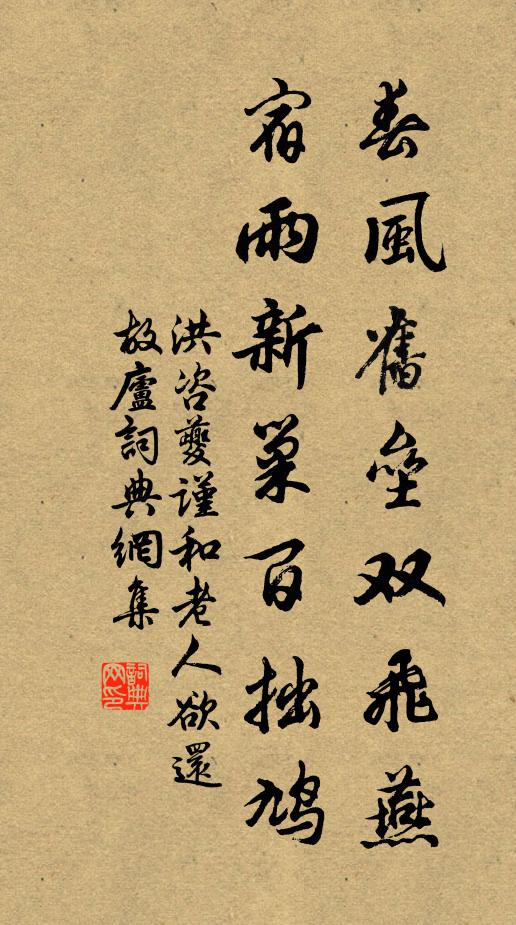 春風舊壘双飛燕
宿雨新巢百拙鳩
洪咨夔謹和老人欲還
故廬詞典網集
詞典网印